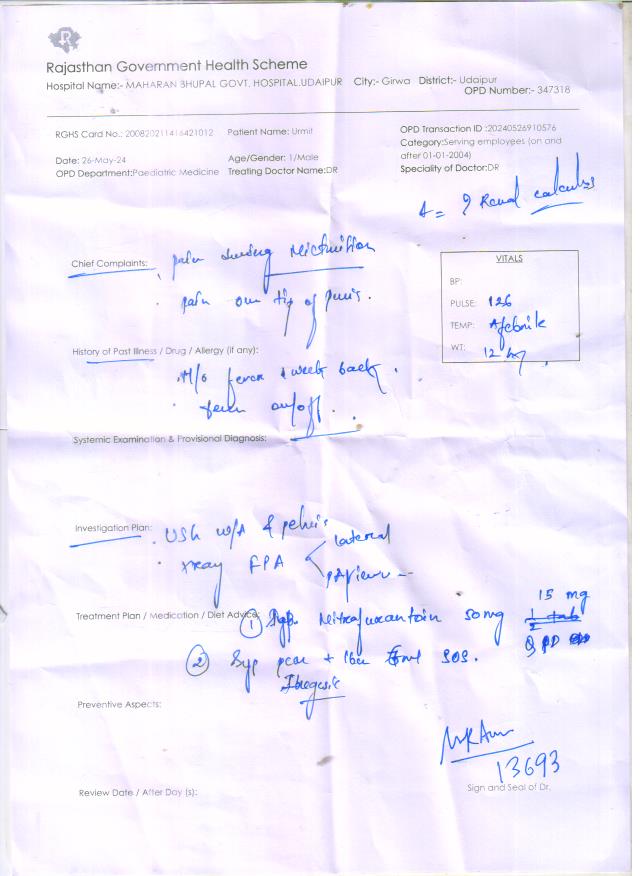 R
Rajasthan Government Health Scheme
Hospital Name:- MAHARAN BHUPAL GOVT. HOSPITAL.UDAIPUR City:- Girwa District:- Udaipur
OPD Number:- 347318
RGHS Card No.: 200820211416421012 Patient Name: Urmit
OPD Transaction ID :20240526910576
Category:Serving employees (on and
after 01-01-2004)
Date: 26-May-24 Age/Gender: 1/Male
OPD Department:Paediatric Medicine Treating Doctor Name:DR
Speciality of Doctor:DR
? Renal calculus
Chief Complaints: pain during Micturition
. pain over tip of penis.
VITALS
BP:
PULSE: 126
TEMP: Afebrile
WT: 12 kg
History of Past Illness / Drug / Allergy (if any):
. H/o fever 1 week back.
. fever on/off.
Systemic Examination & Provisional Diagnosis:
Investigation Plan: . USG W/A & pelvis
. xray FPA lateral
PA view
Treatment Plan / Medication / Diet Advice:
① Nitrofurantoin 50mg 15 mg
1/2 tab
② Syp pcm + Ibu SOS.
Ibugesic
Preventive Aspects:
13693
Sign and Seal of Dr.
Review Date / After Day (s):